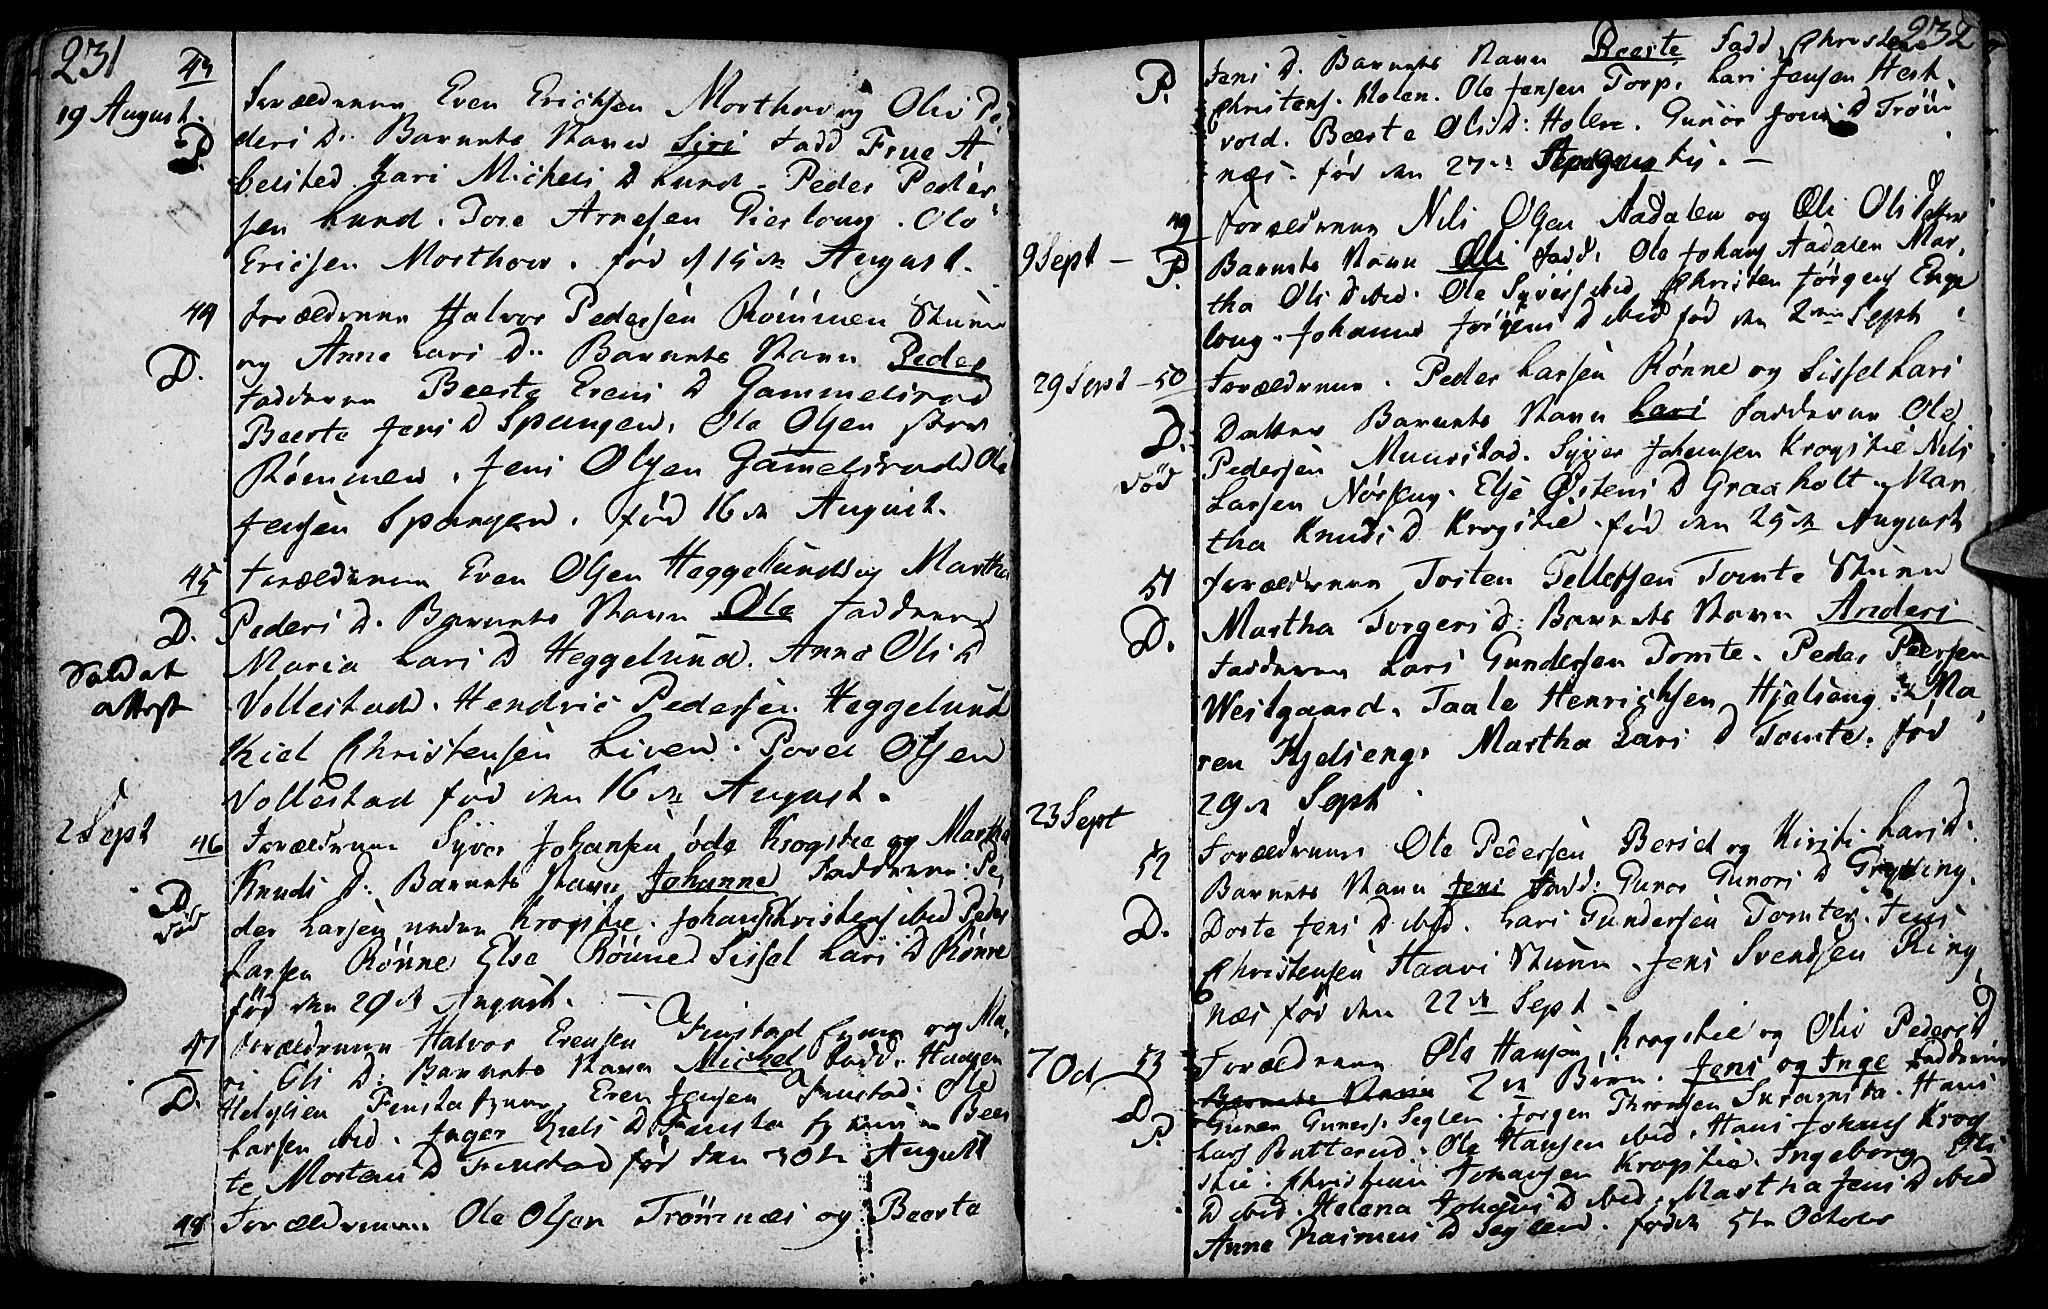 231
43
19 August.
D.
Forældrene Even Erichsen Morthov og Oliv Pe
ders D. Barnets Navn Siri Fadd Frue A
belsted Kari Michels D Lund. Peder Peder
sen Lund. Tore Arnesen Pierloug. Ole
Ericsen Morthow. fød d 15de August.
44
D.
Forældrene Halvor Pedersen Römmen Stunn
og Anne Lars D. Barnets Navn Peder
Faddrene Beerte Evens D Gammelsrud
Beerte Jens D Spangen, Ole Olsen
Römmen, Jens Olsen Gamelsrud Ole
Jensen Spangen, fød 16de August.
45
D.
Soldat
attest
Forældrene Even Olsen Heggelund og Martha
Peders D. Barnets Navn Ole Faddrene
Maria Lars D Heggelund. Anne Ols D
Vollestad. Hendric Pedersen Heggelund
Kiel Christensen Liven. Povel Olsen
Vollestad fød den 16de August.
2 Sept
46
D.
död
Forældrene Syver Johansen öde Krogstie og Martha
Knuds D. Barnets Navn Johanne Faddrene Pe
der Larsen neden Krogstie. Johan Christens ibid Peder
Larsen Rönne Else Rönne Sissel Lars D Rönne
fød den 29de August.
47
D.
Forældrene Halvor Evensen Finstad og Ma
ri Ols D. Barnets Navn Michel Fadd. Haagen
Helgesen Finsta Even Jensen Finstad. Ole
Larsen ibid. Inger Niels D Finsta Beer
te Mortens D Finstad fød den 30te August
48
Forældrene Ole Olsen Trömnæs og Beerte
232
P.
Jens D. Barnets Navn Beerte Fadd Christen
Christens. Holen. Ole Jensen Torp. Lars Jensen Hest
vold. Beerte Ols D: Holen. Gunör Jens D Tröm
næs. fød den 27de Augusti. —
49
9 Sept —
P.
Forældrene Nils Olsen Aadalen og Oli Ols Datter
Barnets Navn Oli Fadd. Ole Johans Aadalen Mar
tha Ols D ibid. Ole Syvers ibid Christen Jörgens Enge
loug. Johanne Jörgens D ibid fød den 2den Sept
29 Sept — 50
D.
död
Forældrene. Peder Larsen Rönne og Sissel Lars
Datter Barnets Navn Lars Faddrene Ole
Pedersen Muurstad. Syver Johansen Krogstie Nils
Larsen Nörseng. Else Østens D Graaholt. Mar
tha Knuds D Krogstie. fød den 25de August
51
D.
Forældrene Torsten Tellefsen Tomte Stunn
Martha Torgers D: Barnets Navn Anders
Faddrene Lars Gundersen Tomte. Peder Peersen
Westgaard. Taale Henrichsen Hjelseng. Ma
ren Hjelseng. Martha Lars D Tomte. fød
29de Sept
23 Sept
52
D.
Forældrene Ole Pedersen Berild og Kirsti Lars D.
Barnets Navn Jens Fadd: Gunor Gunors D Grytting.
Dorte Jens D ibid. Lars Gundersen Tomter. Jens
Christensen Haavi Stunn. Jens Svendsen Ring
næs fød den 22de Sept.
7 Oct
53
D
P
Forældrene Ole Hansen Krogstie og Oliv Peders D
Barnets Navn 2de Börn. Jens og Inge Faddrene
Guner Guners. Seglen. Jörgen Thronsen Hans
Lars Butterud. Ole Hansen ibid. Hans Johans Krog
stie. Christian Johansen Krogstie. Ingeborg Ols
D ibid. Helena Johans D ibid. Martha Jens D ibid
Anne Rasmus D Seglend. fød 5te October